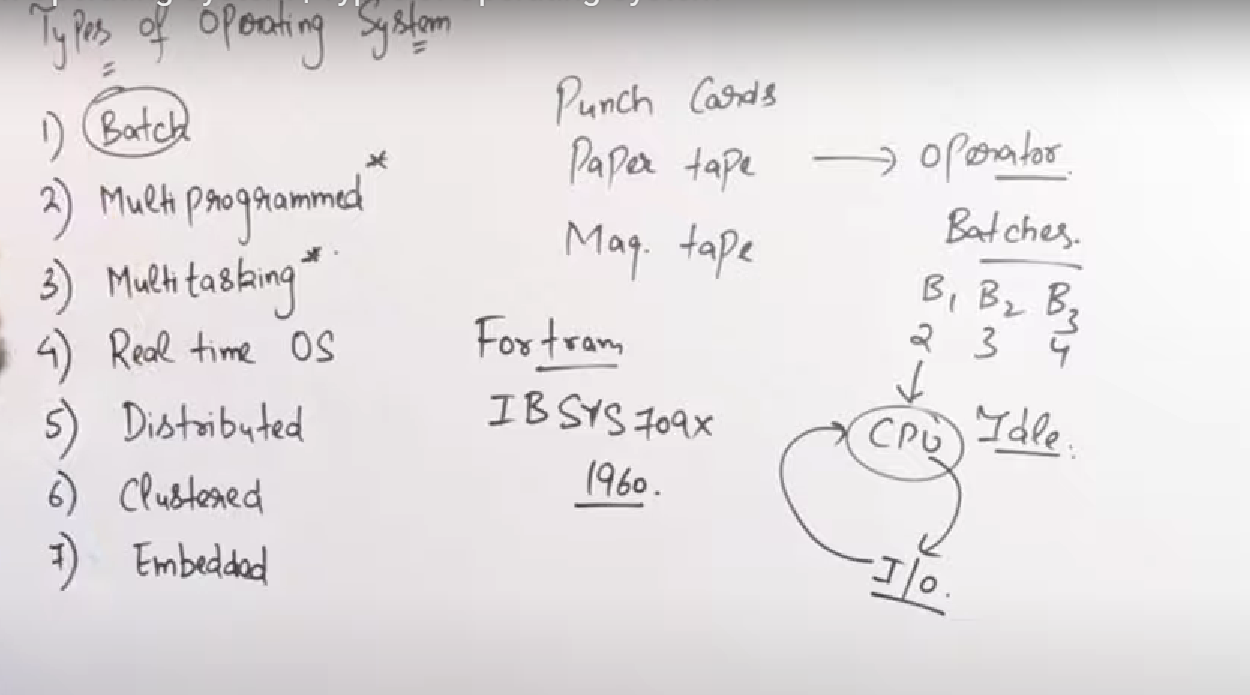 Types of Operating System
1) Batch
2) Multiprogrammed*
3) Multitasking*
4) Real time OS
5) Distributed
6) Clustered
7) Embedded
Punch Cards
Paper tape → Operator
Mag. tape
Fortran
IBSYS 709x
1960.
Batches.
B1 B2 B3
2 3 4
CPU Idle.
I/O.